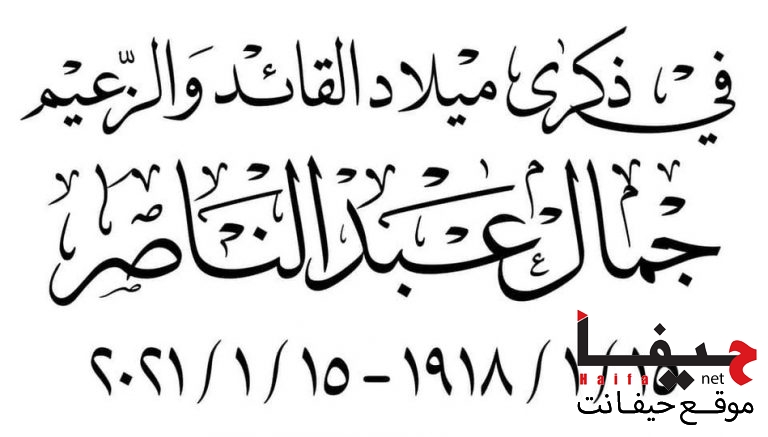 في ذكرى ميلاد القائد والزّعيم
جمال عبد الناصر
١٥ / ١ / ١٩١٨ - ١٥ / ١ / ٢٠٢١
حيفا
Haifa net
موقع حيفانت